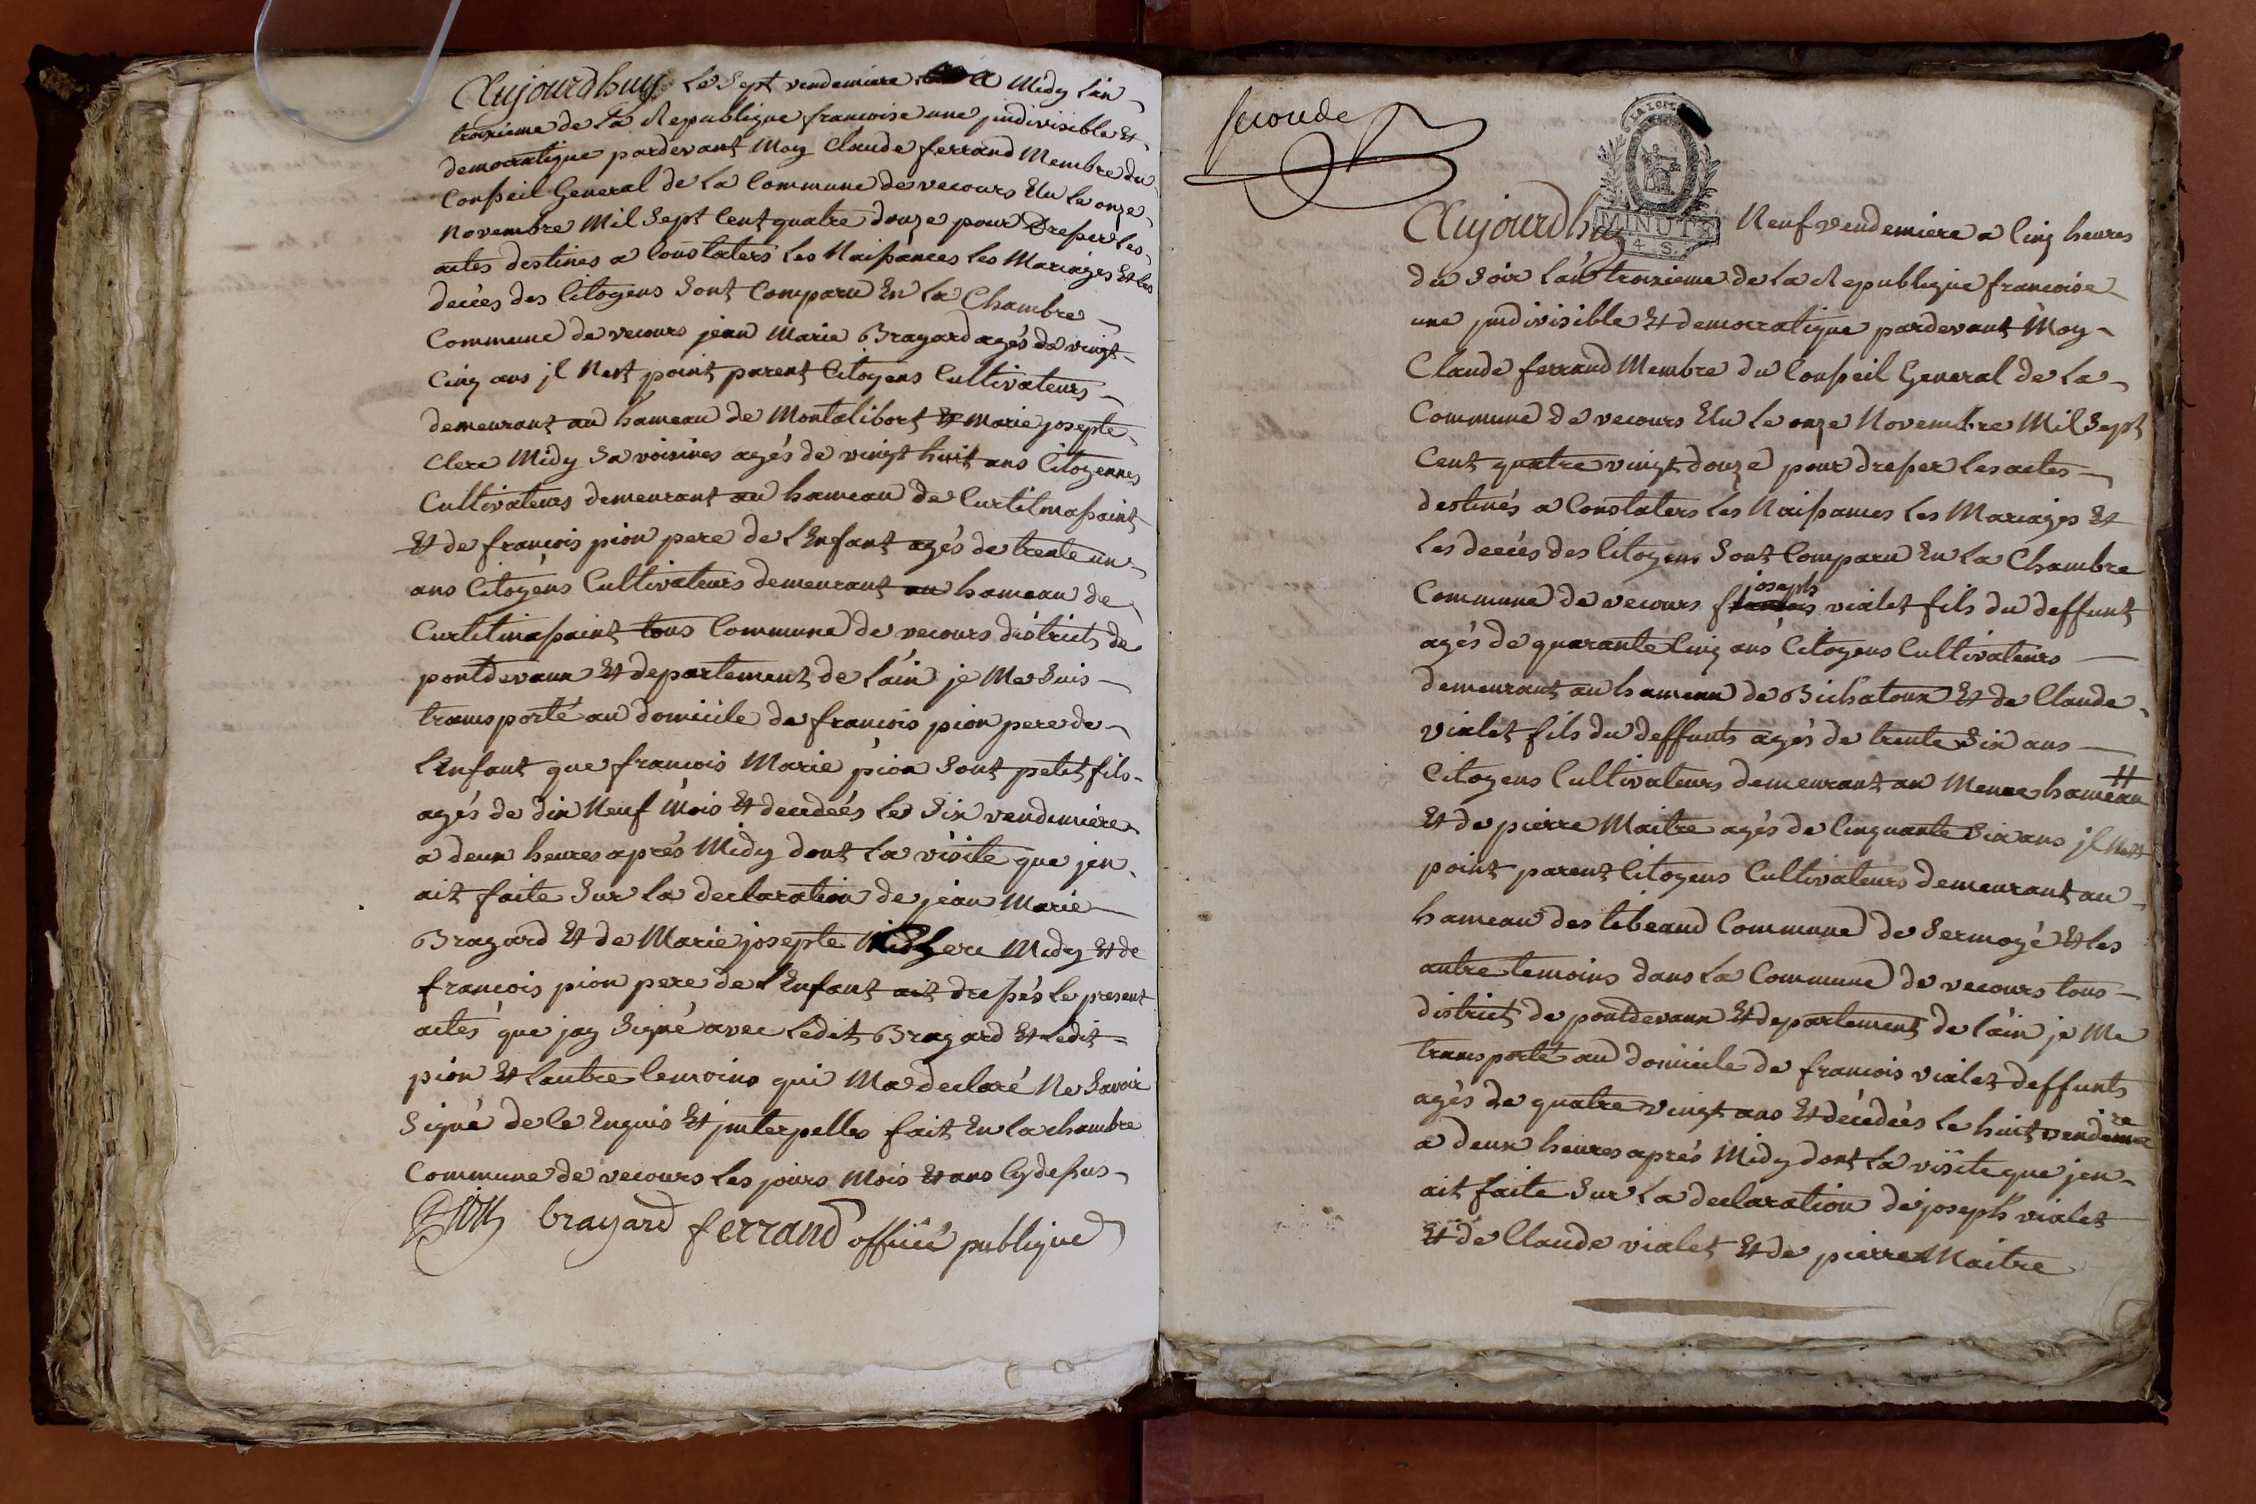 Aujourdhuy Le Sept vendemiere a Midy Lan
troixieme de La Republique francoise une jndivisible Et
democratique pardevant Moy Claude ferrand Membre du
Conseil General de La Commune de vecours Elu Le onze
Novembre Mil Sept Cent quatre douze pour Dresser Les
actes destines a Constaters Les Naissances Les Mariages Et Les
decées des Citoyens Sont Comparu En La Chambre
Commune de vecours jean Marie Bragard agés de vingt
Cinq ans jl Nest point parent Citoyens Cultivateurs
demeurant au hameau de Montalibort Et Marie josepte
Clere Midy Sa voisines agés de vingt huit ans Citoyennes
Cultivateurs demeurant au hameau de Curtilmassaint
Et de francois pion pere de LEnfant agés de trente un
ans Citoyens Cultivateurs demeurant au hameau de
Curtilmassaint tous Commune de vecours districts de
pontdevaux Et departement de Lain je Me Suis
transporté au domicile de francois pion pere de
LEnfant que francois Marie pion Sont petit fils
agés de dix Neuf Mois Et decedeés Le Six vendemiere
a deux heures aprés Midy dont La visite que jen
ait faite Sur La declaration de jean Marie
Bragard Et de Marie josepte Clere Midy Et de
francois pion pere de LEnfant ait dressés Le present
actes que jay Signé avec Ledit Bragard Et Ledit
pion Et Lautre temoins qui Ma declaré Ne Savoir
Signé de Ce Enquis Et jnterpelles fait En La chambre
Commune de vecours Les jours Mois Et ans Cydessus
pion bragard ferrand officié publique
seconde
LA LOI
MINUTE
4 S.
Aujourdhuy Neuf vendemiere a Cinq heures
du Soir Lan troixieme de La Republique francoise
une jndivisible Et democratique pardevant Moy
Claude ferrand Membre du Conseil General de La
Commune de vecours Elu Le onze Novembre Mil Sept
Cent quatre vingt douze pour dresser Les actes
destinés a Constaters Les Naissances Les Mariages Et
Les decées des Citoyens Sont Comparu En La Chambre
joseph
Commune de vecours francois vialet fils du deffunt
agés de quarante Cinq ans Citoyens Cultivateurs
demeurant au hameau de Bichatoux Et de Claude
vialet fils du deffunts agés de trente Six ans
Citoyens Cultivateurs demeurant au Meme hameau
Et de pierre Maitre agés de Cinquante Six ans jl Nest
point parent Citoyens Cultivateurs demeurant au
hameau des tibeaud Commune de Sermoyé Et Les
autre temoins dans La Commune de vecours tous
district de pontdevaux Et departement de Lain je Me
transporté au domicile de francois vialet deffunts
agés de quatre vingt ans Et décédées Le huit vendemiere
a deux heures aprés Midy dont La visite que jen
ait faite Sur La declaration de joseph vialet
Et de Claude vialet Et de pierre Maitre